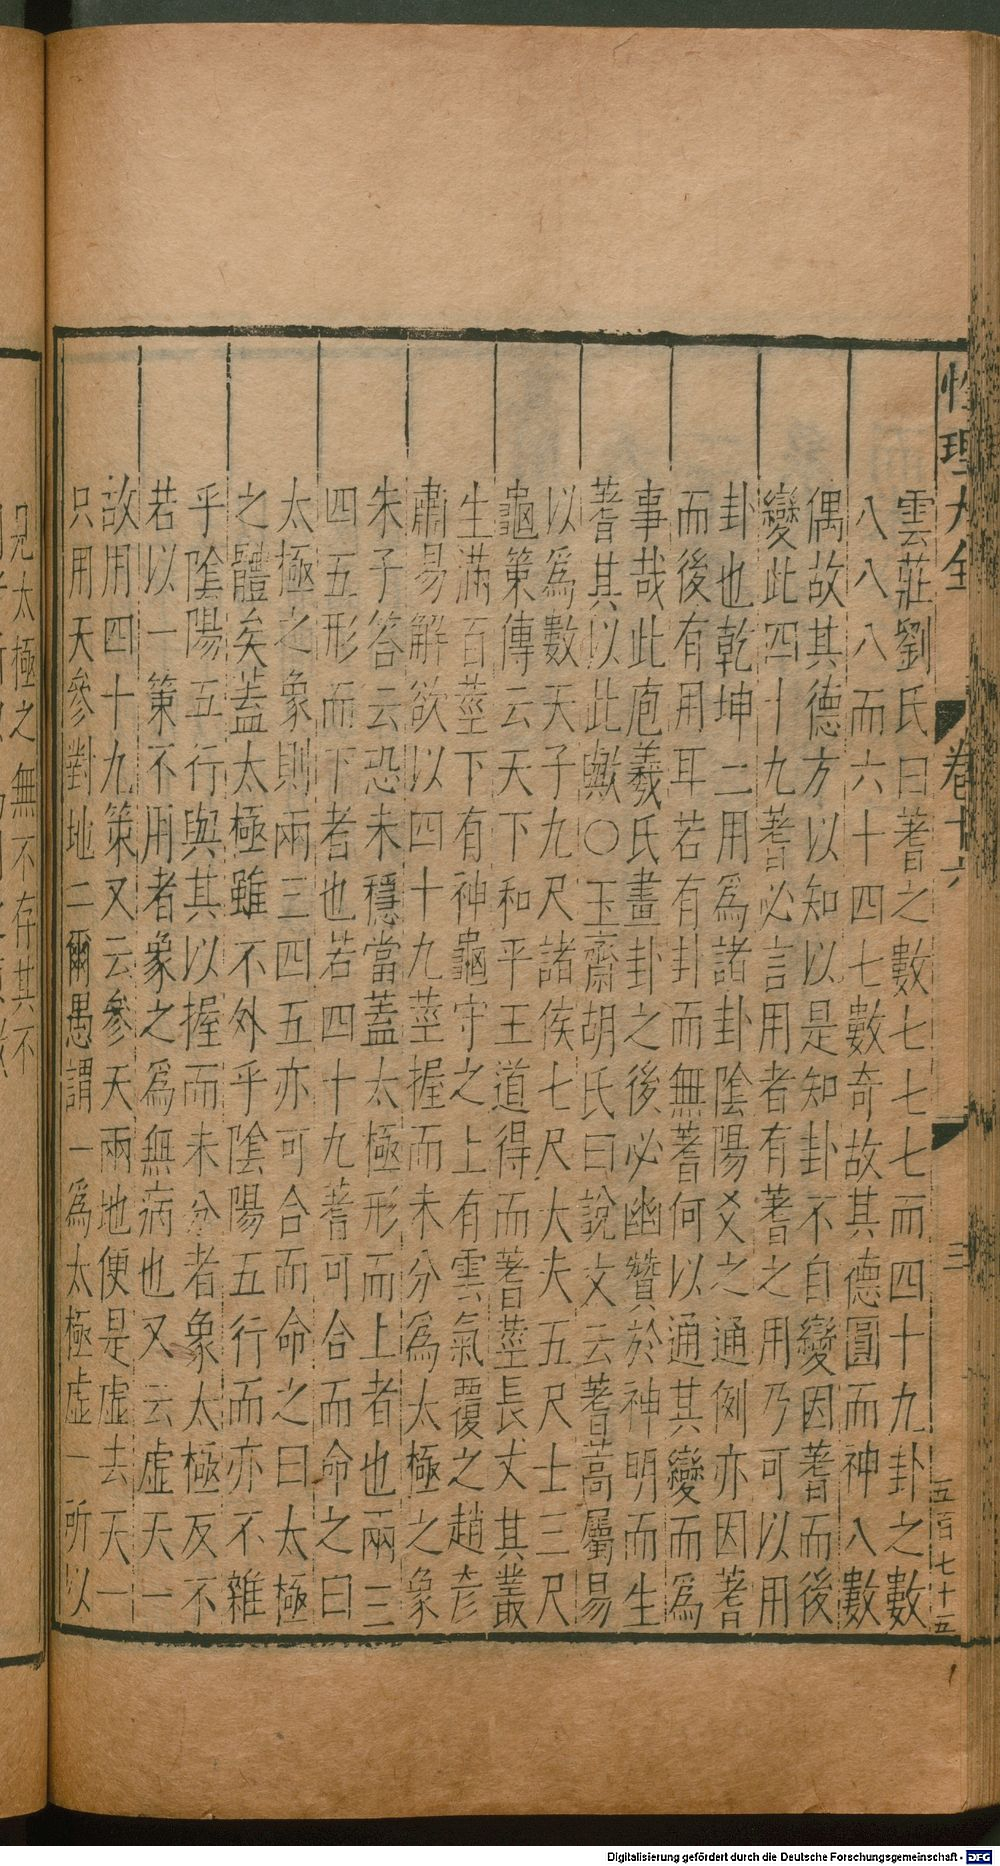 性理大全 卷十六 三 五百七十五
雲莊劉氏曰蓍之數七七七而四十九卦之數
八八八而六十四七數奇故其德圓而神八數
偶故其德方以知以是知卦不自變因蓍而後
變此四十九蓍必言用者有蓍之用乃可以用
卦也乾坤二用爲諸卦陰陽爻之通例亦因蓍
而後有用耳若有卦而無蓍何以通其變而爲
事哉此庖羲氏畫卦之後必幽贊於神明而生
蓍其以此歟○玉齋胡氏曰說文云蓍蒿屬易
以爲數天子九尺諸侯七尺大夫五尺士三尺
龜策傳云天下和平王道得而蓍莖長丈其叢
生滿百莖下有神龜守之上有雲氣覆之趙彥
肅易解欲以四十九莖握而未分爲太極之象
朱子答云恐未穩當蓋太極形而上者也兩三
四五形而下者也若四十九蓍可合而命之曰
太極之象則兩三四五亦可合而命之曰太極
之體矣蓋太極雖不外乎陰陽五行而亦不雜
乎陰陽五行與其以握而未分者象太極反不
若以一策不用者象之爲無病也又云虛天一
故用四十九策又云參天兩地便是虛去天一
只用天參對地二爾愚謂一爲太極虛一所以
太極之無不存其不
Digitalisierung gefördert durch die Deutsche Forschungsgemeinschaft - DFG